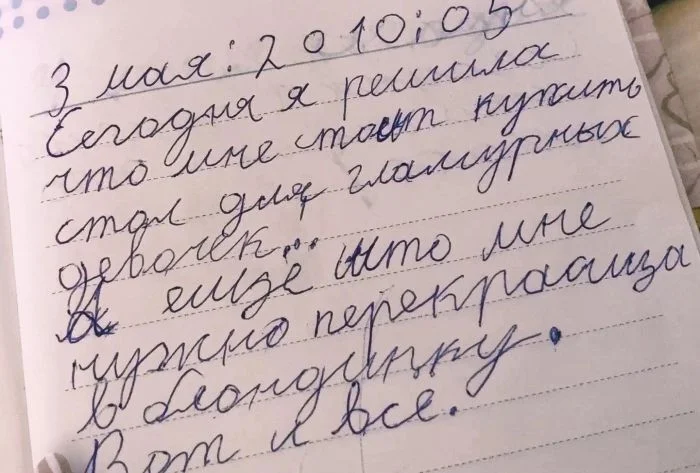 3 мая: 2010:05
Сегодня я решила
что мне стоит купить
стол для гламурных
девочек...
А ещё што мне
нужно перекрасица
в блондинку.
Вот и всё.